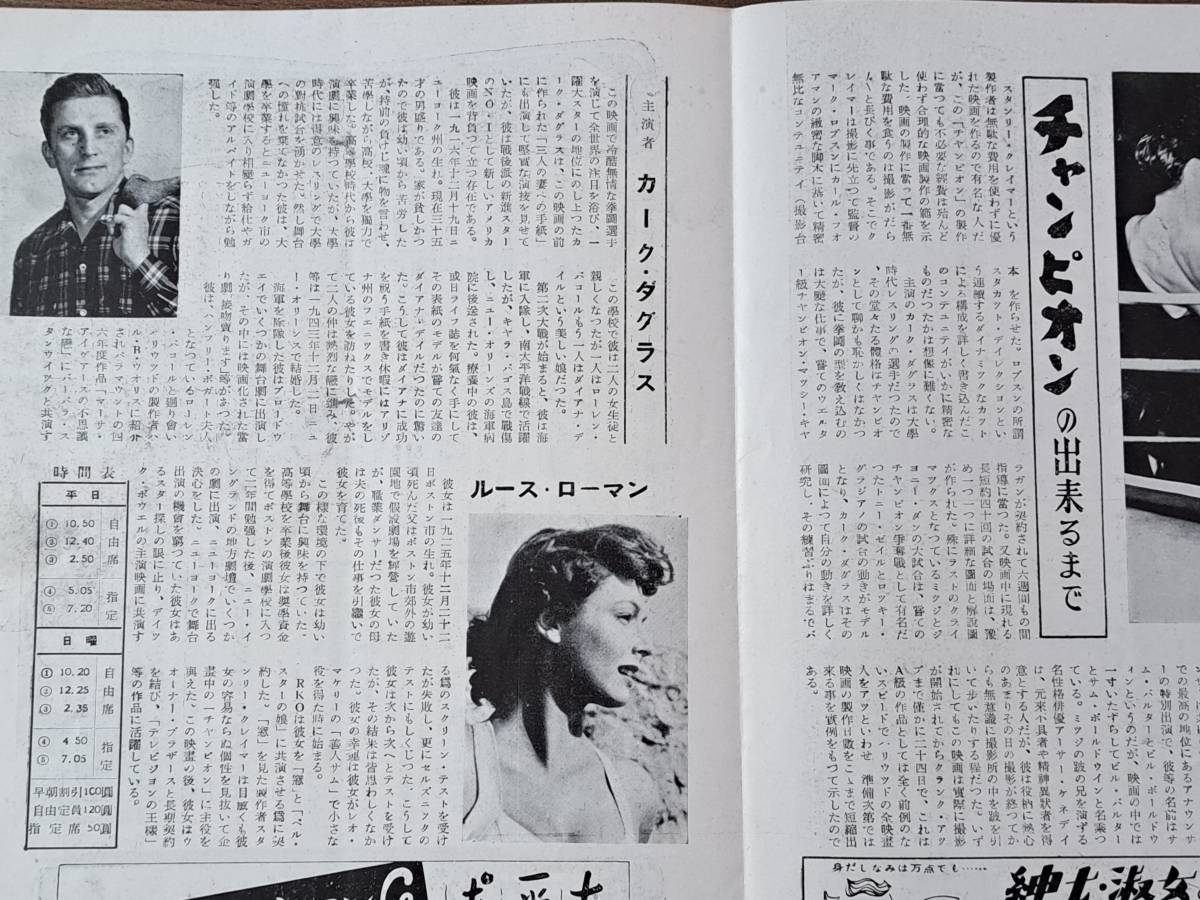 チャンピオンの出来るまで
スタンリー・クレイマーという
製作者は無駄な費用を使わずに優
れた映画を作るので有名な人だ
が、この「チャンピオン」の製作
に當つても不必要な經費は殆んど
使わず合理的な映画製作の範を示
した。映画の製作に當つて一番無
駄な費用を食うのは撮影がだらだ
らと長びく事である。そこでク
レイマーは撮影に先立つて監督の
マーク・ロブスンにカール・フォ
アマンの緻密な脚本に基いて精密
無比なコンテュニティ（撮影台
本を作らせた。ロブスンの所謂
スタカット・デイレクションとい
う連續するダイナミックなカット
による構成を詳しく書き込んだこ
のコンテュニテイがいかに精密な
ものだつたかは想像に難くない。
主演のカーク・ダグラスは大學
時代レスリングの選手だつたの
で、その堂々たる體格はチャンピオ
ンとして聊かも恥しくはなかつ
たが、彼に拳闘の型を教え込むの
は大變な仕事で、嘗てのウエルタ
ー級チャンピオン・マッシー・キャ
ラガンが契約されて六週間もの間
指導に當つた。又映画中に現れる
長短約四十回の試合の場面は、豫
め一つ一つに詳細な圖面と解説圖
が作られた。殊にラストのクライ
マックスとなつているミッジとジ
ョニー・ダンの大試合は、嘗ての
チャンピオン爭奪戰として有名だ
つたトニー・ゼイルとロッキー・
グラジアノの試合の動きがモデル
となり、カーク・ダグラスはその
圖面によつて自分の動きを詳しく
研究し、その練習ぶりはまでパ
での最高の地位にあるアナウンサ
ーの特別出演で、彼等の名前はサ
ム・バルターとビル・ボールドウ
ィンというのだが、映画の中では
一寸いたずらしてビル・バルター
とサム・ボールドウィンと名乗つ
ている。ミッジの跛の兄を演ずる
名性格俳優アーサー・ケネディ
は、元来不具者や精神異狀者を得
意とする人だが、彼は役柄に熱心
のあまりその日の撮影が終つてか
らも無意識に撮影所の中を跛を引
いて歩いたりする程だつた。いず
れにしてもこの映画は實際に撮影
が開始されてからクランク・アッ
プまで僅かに二十四日で、これは
A級の作品としては全く前例のな
いスピードで、ハリウッドの全映畫
人をアッといわせ 準備次第では
映画の製作日數をこゝまで短縮出
来る事を實例をもつて示したので
ある。
主演者 カーク・ダグラス
この映画で冷酷無情な拳闘選手
を演じて全世界の注目を浴び、一
躍大スターの地位にのし上つたカ
ーク・ダグラスは、この映画の前
に作られた「三人の妻への手紙」
にも出演して堅實な演技を見せて
いたが、彼は戰後派の新進スター
のNO・1として新しいアメリカ
映画を背負つて立つ存在である。
彼は一九一六年十二月十九日ニ
ューヨーク州の生れ。現在三十五
才の男盛りである。家が貧しかつ
たので彼は幼い頃から苦労した
が、持前の負けじ魂に物を言わせ、
苦學しながら高校、大學を獨力で
卒業した。高等學校時代から彼は
演劇に興味を持つていたが、大學
時代には得意のレスリングで大學
の對抗試合を湧かせた。然し舞台
への憧れを棄てなかつた彼は、大
學を卒業するとニューヨーク市の
演劇學校に入り相變らず給仕やガ
イド等のアルバイトをしながら勉
強した。
この學校で彼は二人の女生徒と
親しくなつたが一人はローレン・
バコールもう一人はダイアナ・デ
イルという美しい娘だつた。
第二次大戰が始まると、彼は海
軍に入隊し、南太平洋戰線で活躍
したが、キラ・パゴス島で戰傷
し、ニュー・オリーンズの海軍病
院に後送された。療養中の彼は、
或日ライフ誌を何氣なく手にして
その表紙のモデルが嘗ての友達の
ダイアナ・デイルだつたのに驚い
た。こうして彼はダイアナに成功
を祝う手紙を書き休暇にはアリゾ
ナ州のフエニックスでモデルをし
ている彼女を訪ねたりした。やが
て二人の仲は熱烈な戀に進み、彼
等は一九四三年十二月一日ニュ
ー・オリーンズで結婚した。
海軍を除隊した彼はブロードウ
エイでいくつかの舞台劇に出演し
たが、その中には映画化された當
り劇「接吻賣ります」等があつた。
彼は、ハンフリー・ボガート夫人
となつているローレン
・バコールと廻り會い
ハリウッドの製作者ハ
ル・B・ウオリスに紹介
されパラマウントの四
六年度作品「マーサ・
アイヴァースの不思議
な戀」にバーバラ・ス
タンウイックと共演す
ルース・ローマン
彼女は一九二五年十二月二十二
日ボストン市の生れ。彼女が幼い
頃死んだ父はボストン市郊外の遊
園地で假設劇場を經營していた
が、職業ダンサーだつた彼女の母
は夫の死後もその仕事を引繼いで
彼女を育てた。
この様な環境の下で彼女は幼い
頃から舞台に興味を持つていた。
高等學校を卒業後彼女は奬學資金
を得てボストンの演劇學校に入つ
て二年間勉強した後、ニュー・イ
ングランドの地方劇壇でいくつか
の劇に出演、ニューヨークに出る
決心をした。ニューヨークで舞台
出演の機會を窺つていた彼女はあ
るスター探しの眼に止り、デイッ
ク・ポウエルの主演映画に共演す
る爲のスクリーン・テストを受け
たが失敗し、更にセルズニックの
テストにもしくじつた。こうして
彼女は次から次へとテストを受け
たが、その結果は皆思わしくなか
つた。彼女の幸運は彼女がレオ・
マケリーの「善人サム」で小さな
役を得た時に始まる。
RKOは彼女を「窓」と「ベル・
スターの娘」に共演させる爲に契
約した。「窓」を見た製作者スタ
ンリー・クレイマーは目敏くも彼
女の容易ならぬ個性を見抜いて企
畫中の「チャンピオン」に主役を
與えた。この映畫の後、彼女はワ
ーナー・ブラザースと長期契約
を結び、「テレビジョンの王様」
等の作品に活躍している。
時間表
平日
① 10.50 自由席
② 12.40
③ 2.50
④ 5.05 指定
⑤ 7.20
日曜
① 10.20 自由席
② 12.25
③ 2.35
④ 4.50 指定
⑤ 7.05
早朝割引100圓
自由定員120圓
指定席50圓
身だしなみは万点でも……
紳士・淑女